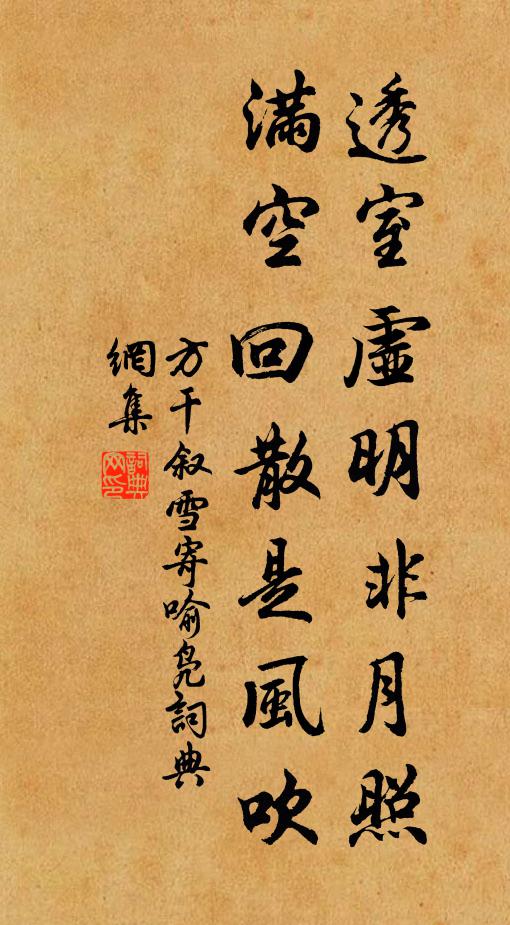 透室虛明非月照
滿空回散是風吹
方干叙雪寄喻凫詞典
網集
詞典
网印